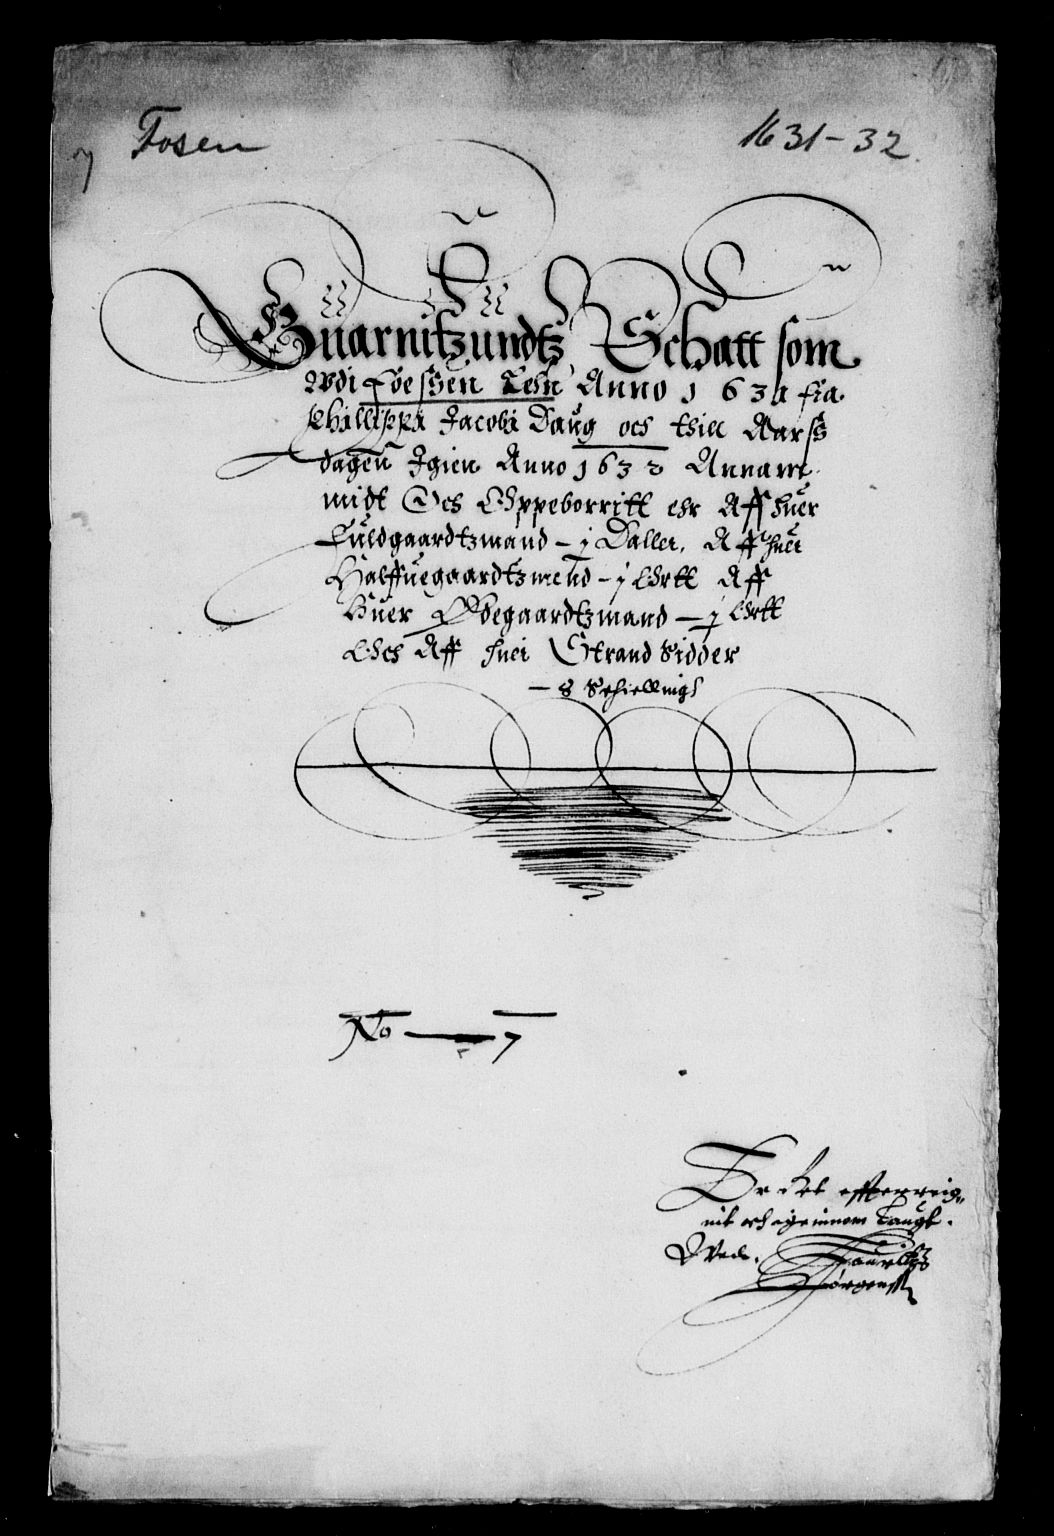 7 Fosen 1631-32.
Guarnitzundtz Schatt som
Wdi Foessen Lehn Anno 1631 fra
Phillippi Jacobi Daug och thill Aarss
dagen Jgien Anno 1632 Annamm
midt Och Oppeborritt ehr Aff huer
Fuldgaardtzmand - j Daller, Aff huer
Halffuegaardtzmend - j Ortt Aff
Huer Ødegaardtzmand - j Ortt
Och Aff huer Strand Sidder
- 8 Schielling
No 7
Er det efftterreig„
nit och igeinnom Laugt.
Wed.
Jørgenss